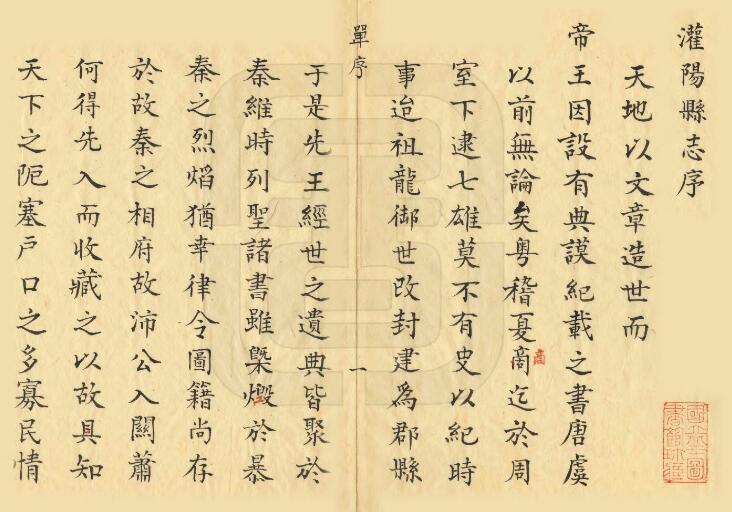 灌陽縣志序
天地以文章造世而
帝王因設有典謨紀載之書唐虞
以前無論矣粵稽夏商迄於周
室下逮七雄莫不有史以紀時
事迨祖龍御世改封建爲郡縣
單序
一
于是先王經世之遺典皆聚於
秦維時列聖諸書雖槩燬於暴
秦之烈焰猶幸律令圖籍尚存
於故秦之相府故沛公入關蕭
何得先入而收藏之以故具知
天下之阨塞戶口之多寡民情